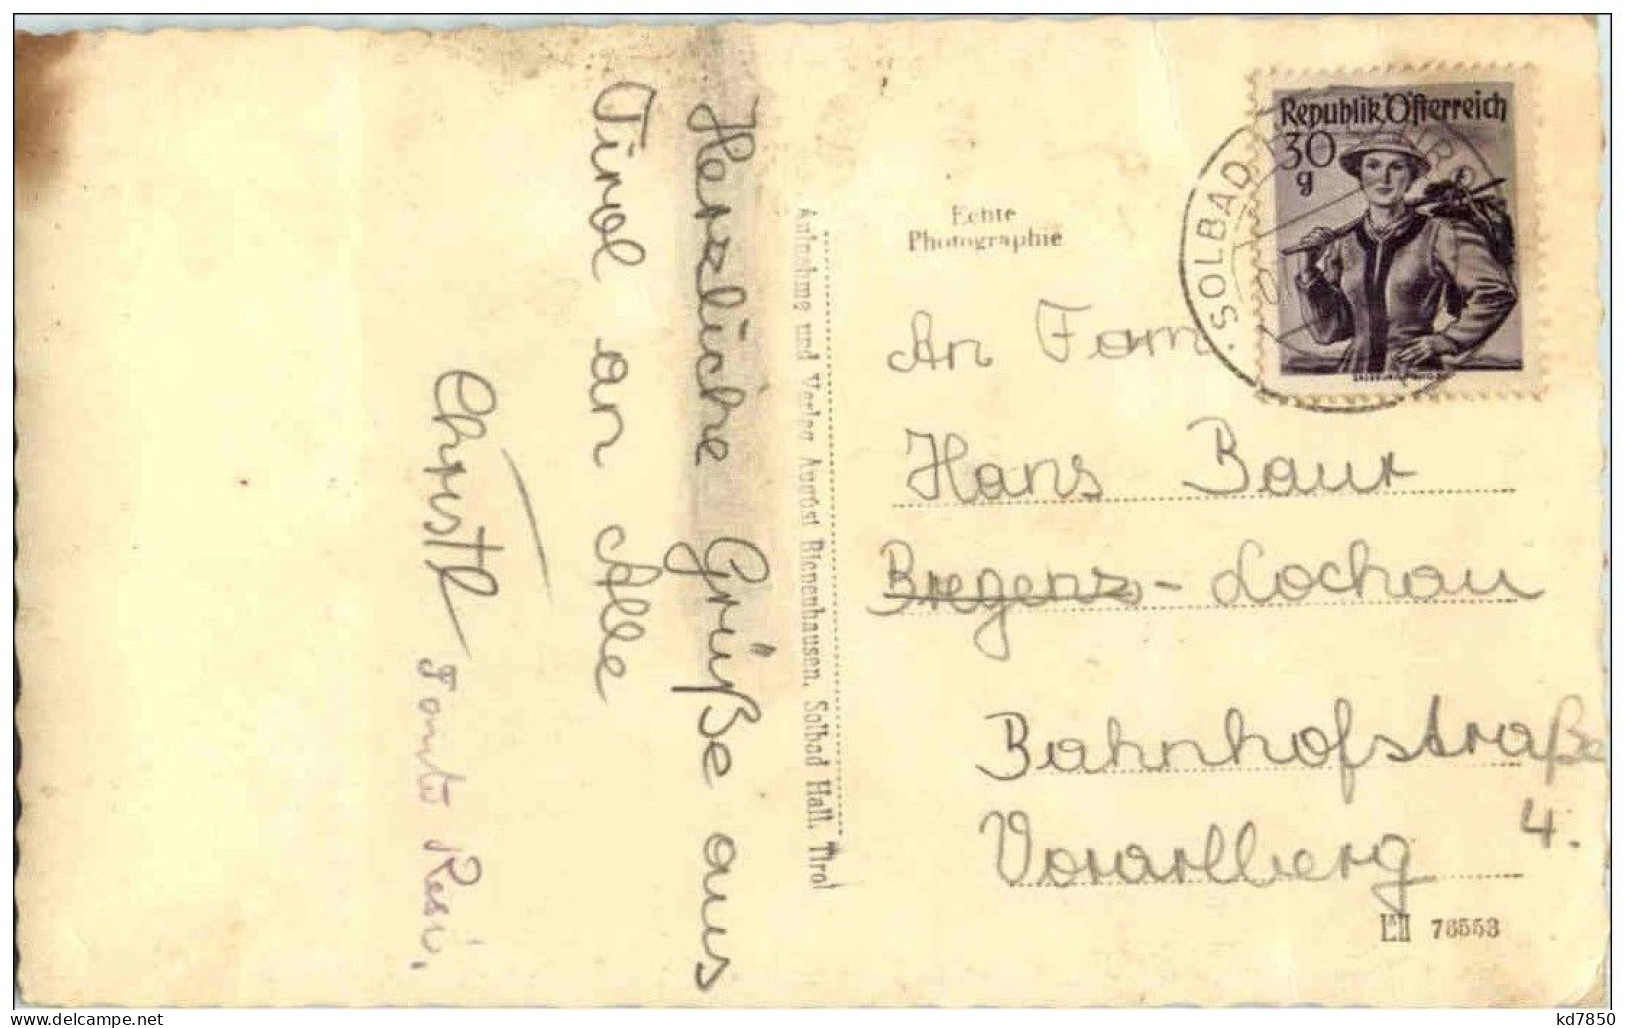 Herzliche Grüße aus
Tirol an Alle
Christl
Tante Resi.
Aufnahme und Verlag August Bienenhausen, Solbad Hall, Tirol
Echte
Photographie
Republik Österreich
30
g
SOLBAD
An Fam.
Hans Baur
Bregenz - Lochau
Bahnhofstraße
4.
Vorarlberg
76553
www.delcampe.net
kd7850